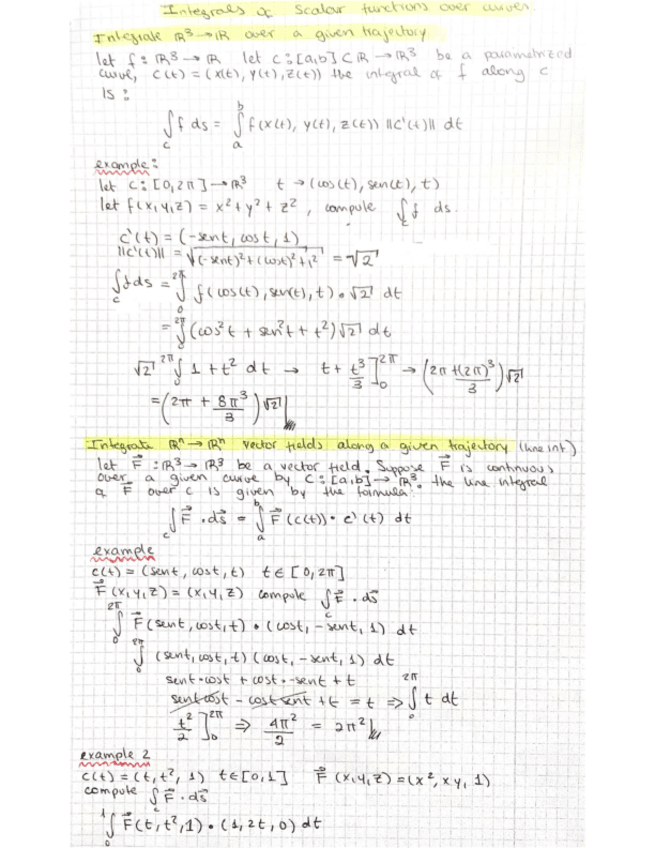 Integrals of Scalar functions over curves.
Integrate ℝ³→ℝ over a given trajectory
let f: ℝ³→ℝ let c:[a,b]⊂ℝ→ℝ³ be a parametrized
curve, c(t) = (x(t), y(t), z(t)) the integral of f along c
is:
∫_c f ds = ∫_a^b f(x(t), y(t), z(t)) ||c'(t)|| dt
example:
let c:[0,2π]→ℝ³ t→(cos(t), sen(t), t)
let f(x,y,z) = x²+y²+z², compute ∫_c f ds.
c'(t) = (-sent, cost, 1)
||c'(t)|| = √((-sent)²+(cost)²+1²) = √2
∫_c f ds = ∫_0^2π f(cos(t), sen(t), t) • √2 dt
= ∫_0^2π (cos²t + sen²t + t²)√2 dt
√2 ∫_0^2π 1+t² dt → t+ t³/3 ]_0^2π → (2π + (2π)³/3)√2
= (2π + 8π³/3)√2
Integrate ℝⁿ→ℝⁿ vector fields along a given trajectory (line int.)
let F⃗: ℝ³→ℝ³ be a vector field. Suppose F⃗ is continuous
over a given curve by c:[a,b]→ℝ³. the line integral
of F⃗ over c is given by the formula:
∫_c F⃗ • ds⃗ = ∫_a^b F⃗(c(t)) • c'(t) dt
example
c(t) = (sent, cost, t) t∈[0,2π]
F⃗(x,y,z) = (x,y,z) compute ∫_c F⃗ • ds⃗
∫_0^2π F⃗(sent, cost, t) • (cost, -sent, 1) dt
∫_0^2π (sent, cost, t)(cost, -sent, 1) dt
sent•cost + cost•-sent + t
sentcost - costsent + t = t ⇒ ∫_0^2π t dt
t²/2 ]_0^2π ⇒ 4π²/2 = 2π²
example 2
c(t) = (t, t², 1) t∈[0,1] F⃗(x,y,z) = (x², xy, 1)
compute ∫_c F⃗ • ds⃗
∫_0^1 F⃗(t, t², 1) • (1, 2t, 0) dt